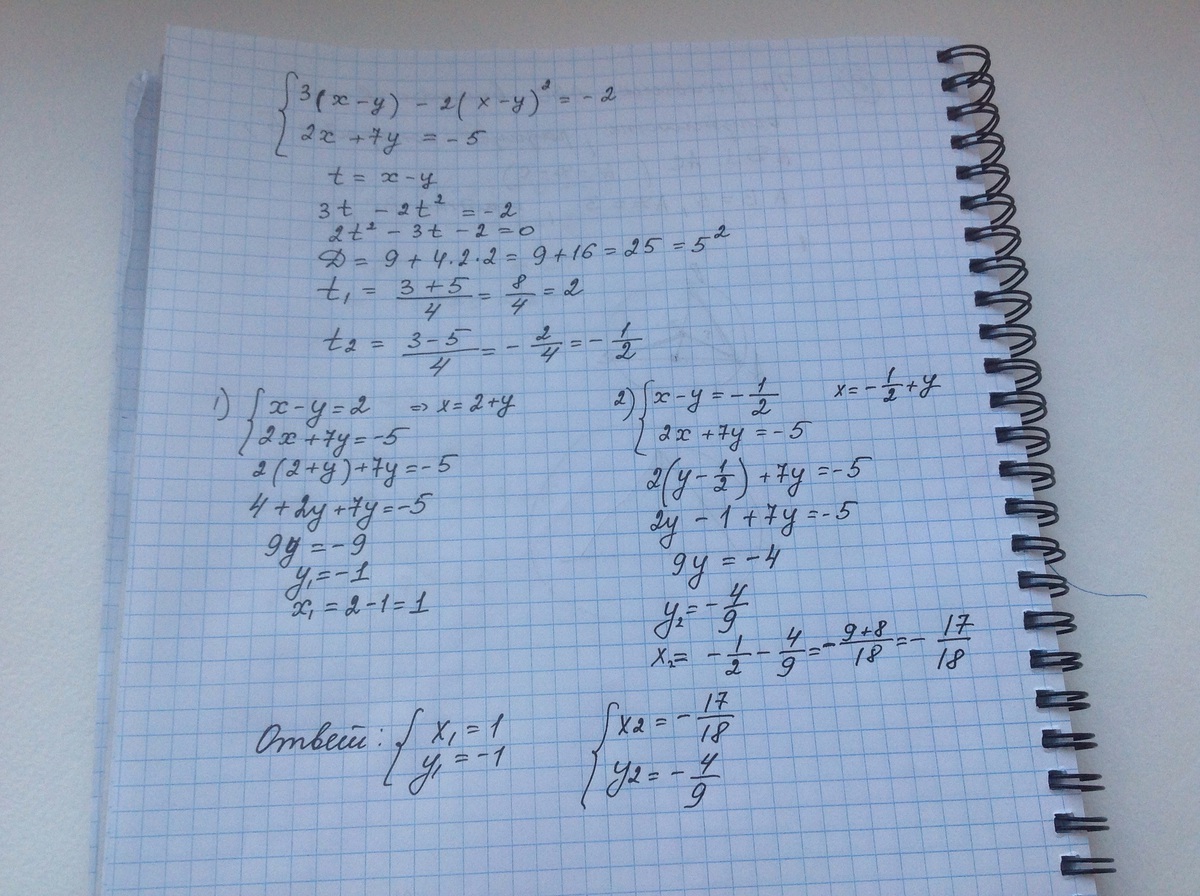 { 3(x-y) - 2(x-y)² = -2
2x + 7y = -5
t = x-y
3t - 2t² = -2
2t² - 3t - 2 = 0
D = 9 + 4·2·2 = 9 + 16 = 25 = 5²
t₁ = (3+5)/4 = 8/4 = 2
t₂ = (3-5)/4 = -2/4 = -1/2
1) { x-y = 2 ⇒ x = 2+y
2x + 7y = -5
2(2+y) + 7y = -5
4 + 2y + 7y = -5
9y = -9
y₁ = -1
x₁ = 2-1 = 1
2) { x-y = -1/2 x = -1/2 + y
2x + 7y = -5
2(y - 1/2) + 7y = -5
2y - 1 + 7y = -5
9y = -4
y₂ = -4/9
x₂ = -1/2 - 4/9 = -(9+8)/18 = -17/18
Ответ: { x₁ = 1
y₁ = -1
{ x2 = -17/18
y2 = -4/9